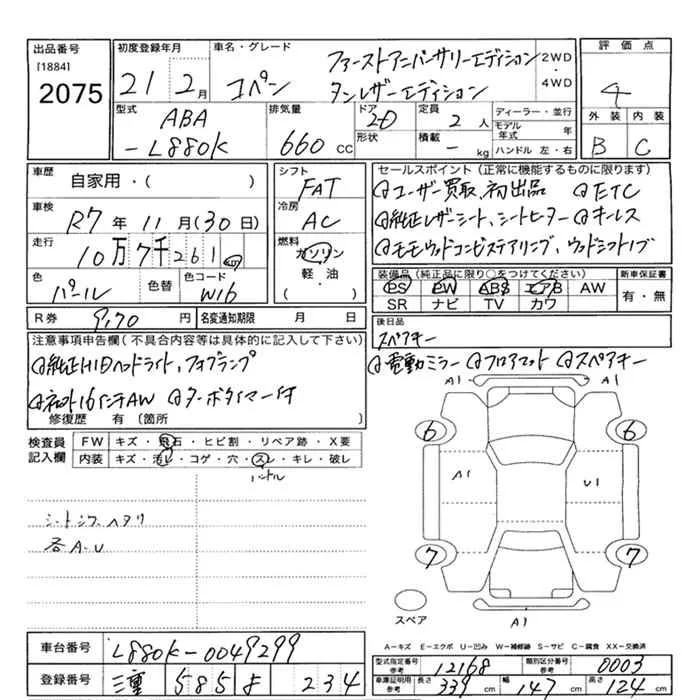 出品番号 [1884] 2075
初度登録年月 21 2月
車名・グレード コペン ファーストアニバーサリーエディション
タンレザーエディション
2WD・4WD
評価点 4
外装 B 内装 C
型式 ABA-L880K
排気量 660cc
ドア 2D 形状
定員 2人 積載 - kg
ディーラー・並行
モデル年式 年
ハンドル 左・右
車歴 自家用・( )
車検 R7年11月(30日)
走行 10万7千261km
色 パール 色替 色コード W16
シフト FAT
冷房 AC
燃料 ガソリン・軽油・( )
セールスポイント(正常に機能するものに限ります)
ユーザー買取、初出品 ETC
純正レザーシート、シートヒーター キーレス
モモウッドコンビステアリング、ウッドシフトノブ
装備品(純正品に限り○をつけてください) 新車保証書
PS PW ABS エアB AW 有・無
SR ナビ TV カワ
R券 9,170円 名変通知期限 月 日
後日品
スペアキー
注意事項申告欄(不具合内容等は具体的に記入して下さい)
純正HIDヘッドライト、フォグランプ
16インチAW ターボタイマー付
電動ミラー フロアマット スペアキー
修復歴 有 〔箇所 〕
検査員記入欄
FW キズ・飛石・ヒビ割・リペア跡・X要
内装 キズ・汚レ・コゲ・穴・スレ・キレ・破レ
ハンドル
シートシワ、ヘタリ
各A-U
A1 A1
6 6
A1 U1
7 7
スペア A1
A-キズ E-エクボ U-凹み W-補修跡 S-サビ C-腐食 XX-交換済
車台番号 L880K-0049299
登録番号 三重 585 234
型式指定番号 参考 12168 類別区分番号 参考 0003
車庫証明用 参考 長さ 339cm 幅 147cm 高さ 124cm